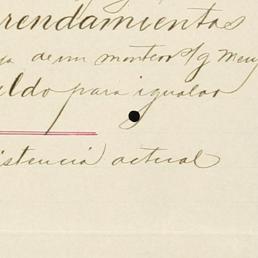 rrendamientos
de un montero s/g
ldo para igualar
istencia actual